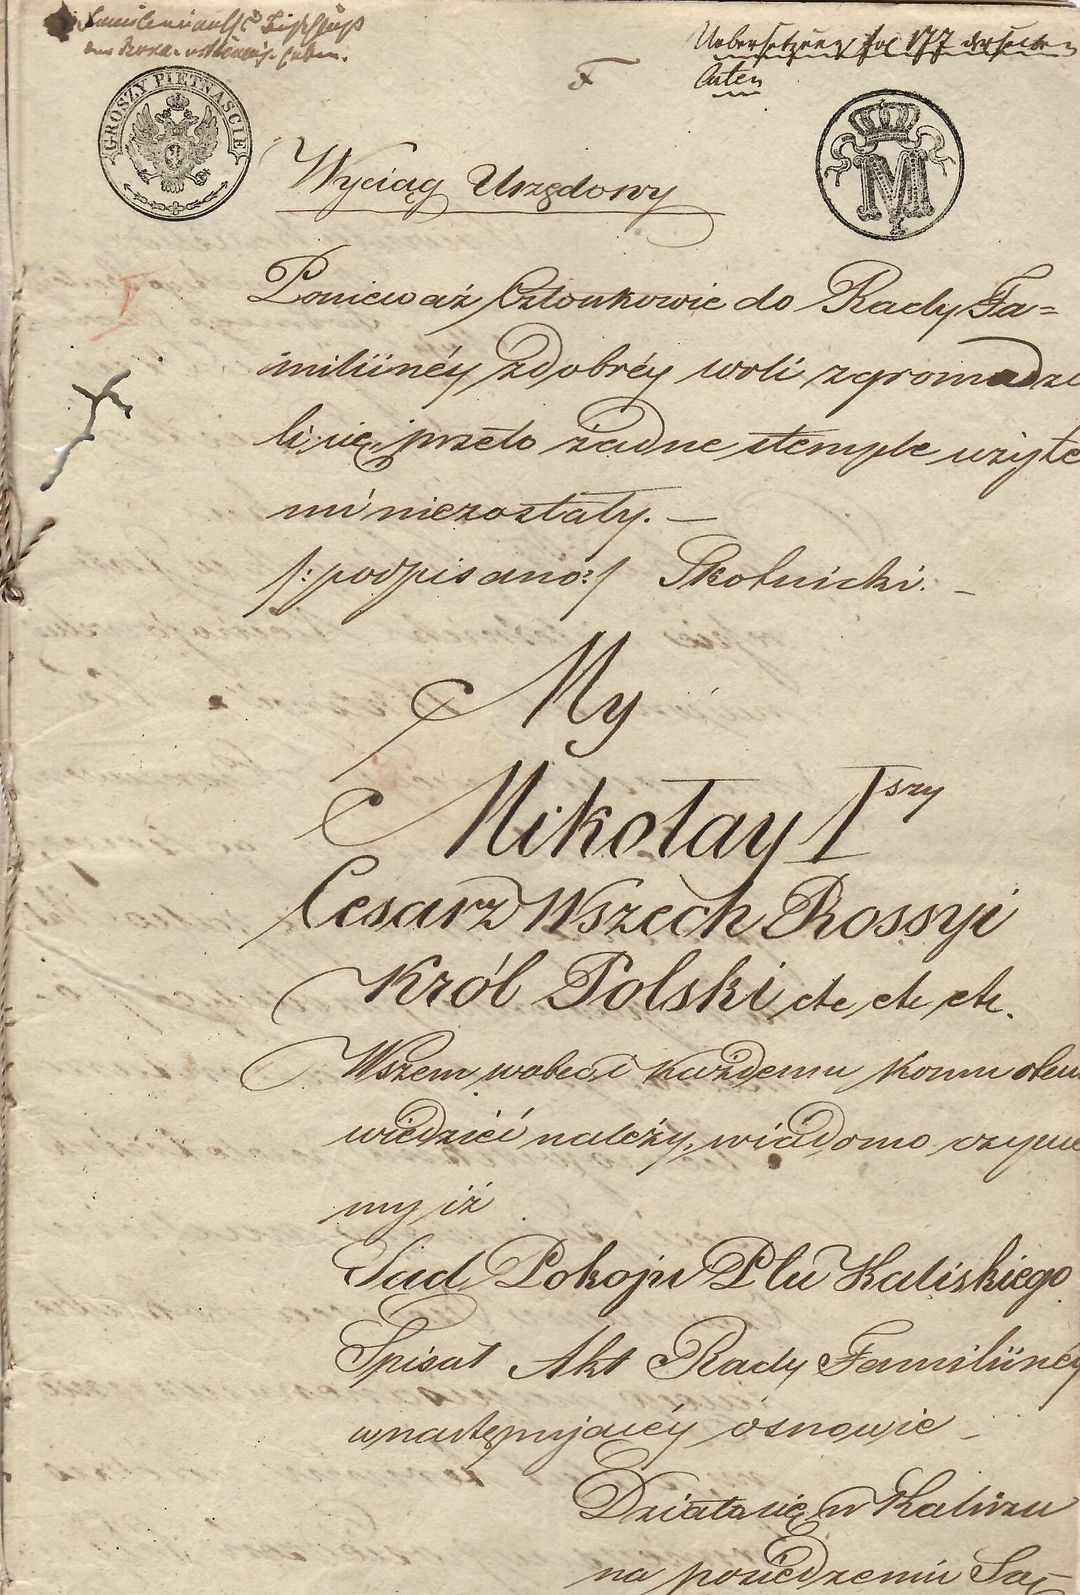 Familienrath
Uebersetzung fol 177 derselben
Acten
GROSZY PIETNASCIE
M
F
Wyciąg Urzędowy
Ponieważ Członkowie do Rady Fa=
miliinéy z dobréy woli zgromadzi
li się, przeto żadne stemple użyte
mi niezostały. —
/: podpisano :/ Skotnicki. —
My
Mikołay Iszy
Cesarz Wszech Rossyi
Król Polski etc etc etc.
Wszem wobec i każdemu komu o tem
wiedzieć należy, wiadomo czynie
my iż
Sąd Pokoju Ptu Kaliskiego
Spisał Akt Rady Familiinéy
w następującéy osnowie —
Działo się w Kaliszu
na posiedzeniu Są=